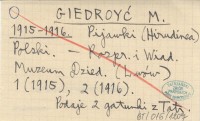 GIEDROYĆ M.
1915-1916. Pijawki (Hirudinea)
Polski. — Rozpr. i Wiad.
Muzeum Dzied. (Lwów)
1 (1915), 2 (1916).
Podaje 2 gatunki z Tatr.
BT/016/